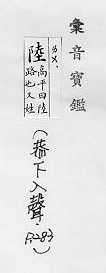 彙音寶鑑
ㄌㄨˋ
陸 高平曰陸
路也又姓
(恭下入聲.P.283)